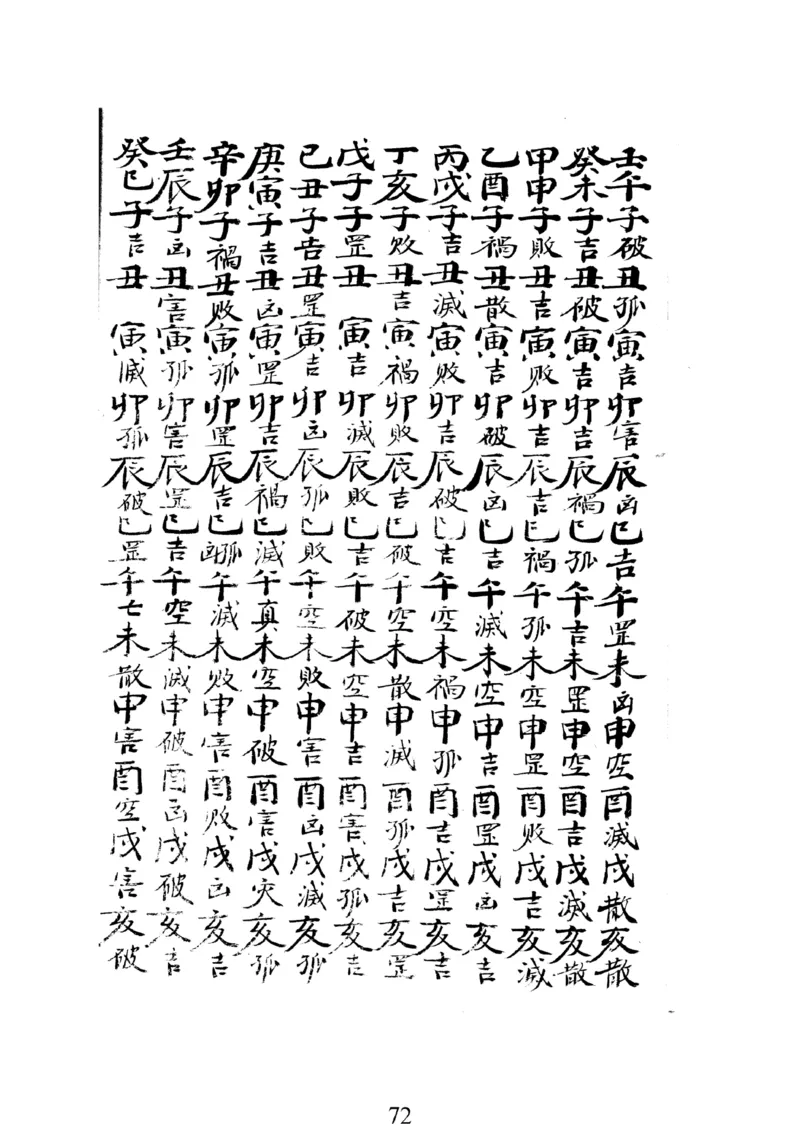 壬午子破丑孤寅吉卯害辰凶巳吉午罡未凶申空酉滅戌散亥散
癸未子吉丑破寅吉卯吉辰禍巳孤午吉未罡申空酉吉戌滅亥散
甲申子敗丑吉寅敗卯吉辰吉巳禍午孤未空申罡酉敗戌吉亥滅
乙酉子禍丑散寅吉卯破辰凶巳吉午滅未空申吉酉罡戌凶亥吉
丙戌子吉丑滅寅敗卯吉辰破巳吉午空未禍申孤酉吉戌罡亥吉
丁亥子敗丑吉寅禍卯敗辰吉巳破午空未散申滅酉孤戌吉亥罡
戊子子罡丑 寅吉卯滅辰敗巳吉午破未空申吉酉害戌孤亥吉
己丑子吉丑罡寅吉卯凶辰孤巳敗午空未敗申害酉凶戌滅亥孤
庚寅子吉丑凶寅罡卯吉辰禍巳滅午真未空申破酉害戌灾亥孤
辛卯子禍丑敗寅孤卯罡辰吉巳凶孤午滅未敗申害酉敗戌凶亥吉
壬辰子凶丑害寅孤卯害辰罡巳吉午空未滅申破酉凶戌破亥吉
癸巳子吉丑 寅滅卯孤辰破巳罡午七未散申害酉空戌害亥破
72